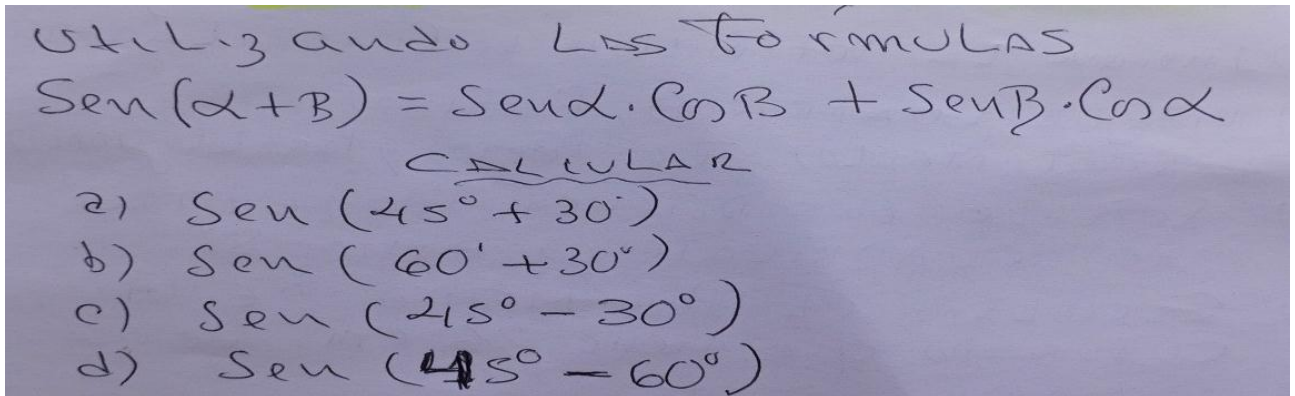 Utilizando LAS FórmULAS
Sen(α+B) = Senα.CosB + SenB.Cosα
CALCULAR
a) Sen (45° + 30°)
b) Sen (60' + 30°)
c) Sen (45° - 30°)
d) Sen (45° - 60°)